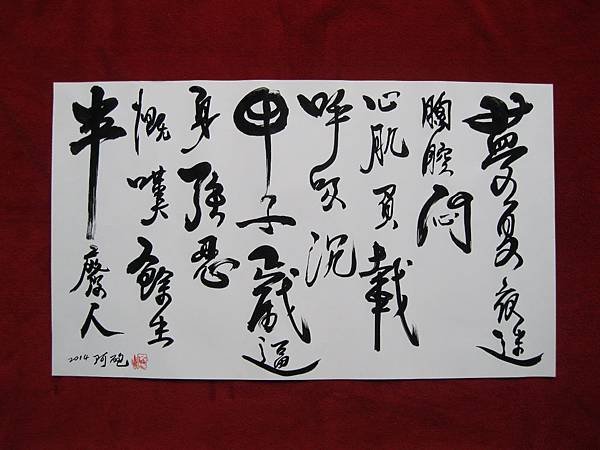 夢夏夜迷
胸腔悶
心肌負載
呼吸沉
甲子歲逼
身強忍
慨嘆餘生
半廢人
2014 阿砲